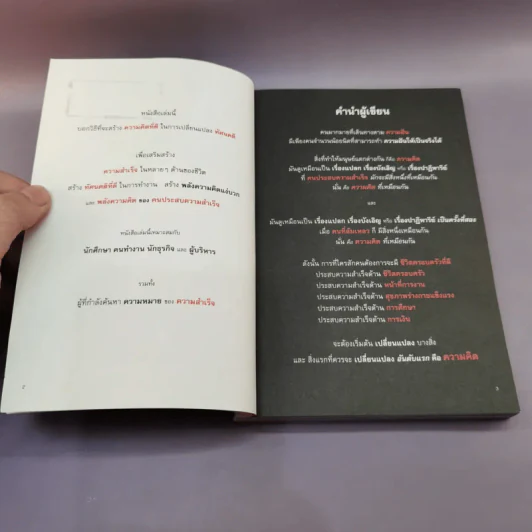 หนังสือเล่มนี้
บอกวิธีที่จะสร้าง ความคิดที่ดี ในการเปลี่ยนแปลง ทัศนคติ
เพื่อเสริมสร้าง
ความสำเร็จ ในหลายๆ ด้านของชีวิต
สร้าง ทัศนคติที่ดี ในการทำงาน สร้าง พลังความคิดแง่บวก
และ พลังความคิด ของ คนประสบความสำเร็จ
หนังสือเล่มนี้เหมาะสมกับ
นักศึกษา คนทำงาน นักธุรกิจ และ ผู้บริหาร
รวมทั้ง
ผู้ที่กำลังค้นหา ความหมาย ของ ความสำเร็จ
2
คำนำผู้เขียน
คนมากมายที่เดินตามตาม ความฝัน
มีเพียงคนจำนวนน้อยนิดที่สามารถทำ ความฝันให้เป็นจริงได้
สิ่งที่ทำให้มนุษย์แตกต่างกัน ก็คือ ความคิด
มันดูเหมือนเป็น เรื่องแปลก เรื่องบังเอิญ หรือ เรื่องปาฏิหาริย์
ที่ คนประสบความสำเร็จ มักจะมีสิ่งหนึ่งที่เหมือนกัน
นั่น คือ ความคิด ที่เหมือนกัน
และ
มันดูเหมือนเป็น เรื่องแปลก เรื่องบังเอิญ หรือ เรื่องปาฏิหาริย์ เป็นครั้งที่สอง
เมื่อ คนที่ล้มเหลว ก็ มีสิ่งหนึ่งที่เหมือนกัน
นั่น คือ ความคิด ที่เหมือนกัน
ดังนั้น การที่ใครสักคนต้องการจะมี ชีวิตครอบครัวที่ดี
ประสบความสำเร็จด้าน ชีวิตครอบครัว
ประสบความสำเร็จด้าน หน้าที่การงาน
ประสบความสำเร็จด้าน สุขภาพร่างกายแข็งแรง
ประสบความสำเร็จด้าน การศึกษา
ประสบความสำเร็จด้าน การเงิน
จะต้องเริ่มต้น เปลี่ยนแปลง บางสิ่ง
และ สิ่งแรกที่ควรจะ เปลี่ยนแปลง อันดับแรก คือ ความคิด
3